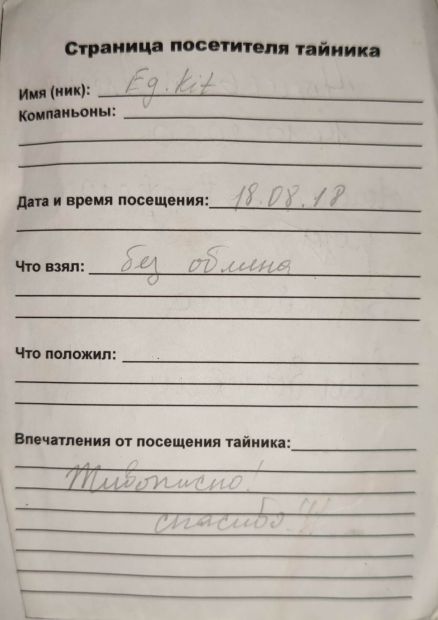 Страница посетителя тайника
Имя (ник): Eg. Kit
Компаньоны:
Дата и время посещения: 18.08.18
Что взял: без обмена
Что положил:
Впечатления от посещения тайника:
Живописно!
спасибо!!!